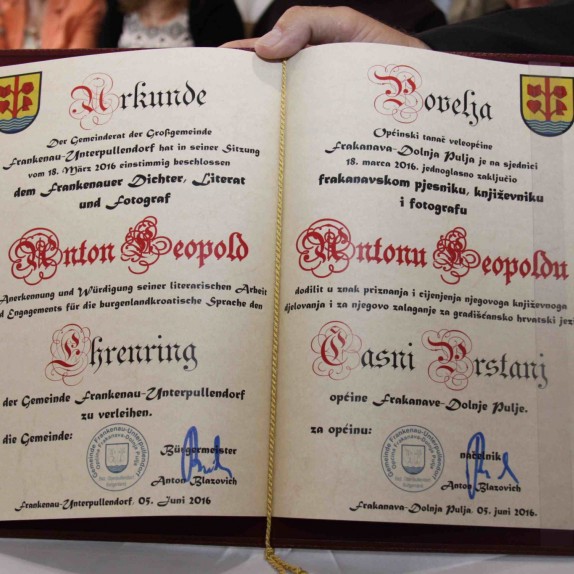 Urkunde
Der Gemeinderat der Großgemeinde
Frankenau-Unterpullendorf hat in seiner Sitzung
vom 18. März 2016 einstimmig beschlossen
dem Frankenauer Dichter, Literat
und Fotograf
Anton Leopold
Anerkennung und Würdigung seiner literarischen Arbeit
Engagements für die burgenlandkroatische Sprache den
Ehrenring
der Gemeinde Frankenau-Unterpullendorf
zu verleihen.
die Gemeinde:
Bürgermeister
Gemeinde Frankenau-Unterpullendorf
Anton Blazovich
Frankenau-Unterpullendorf, 05. Juni 2016
Povelja
Općinski tanač veleopćine
Frakanava-Dolnja Pulja je na sjednici
18. marca 2016. jednoglasno zaključio
frakanavskom pjesniku, književniku
i fotografu
Antonu Leopoldu
dodilit u znak priznanja i cijenjenja njegovoga književnoga
djelovanja i za njegovo zalaganje za gradišćansko hrvatski
Časni Prstanj
općine Frakanave-Dolnje Pulje.
za općinu:
načelnik
Gemeinde Frankenau-Unterpullendorf
Anton Blazovich
Frakanava-Dolnja Pulja, 05. juni 2016.